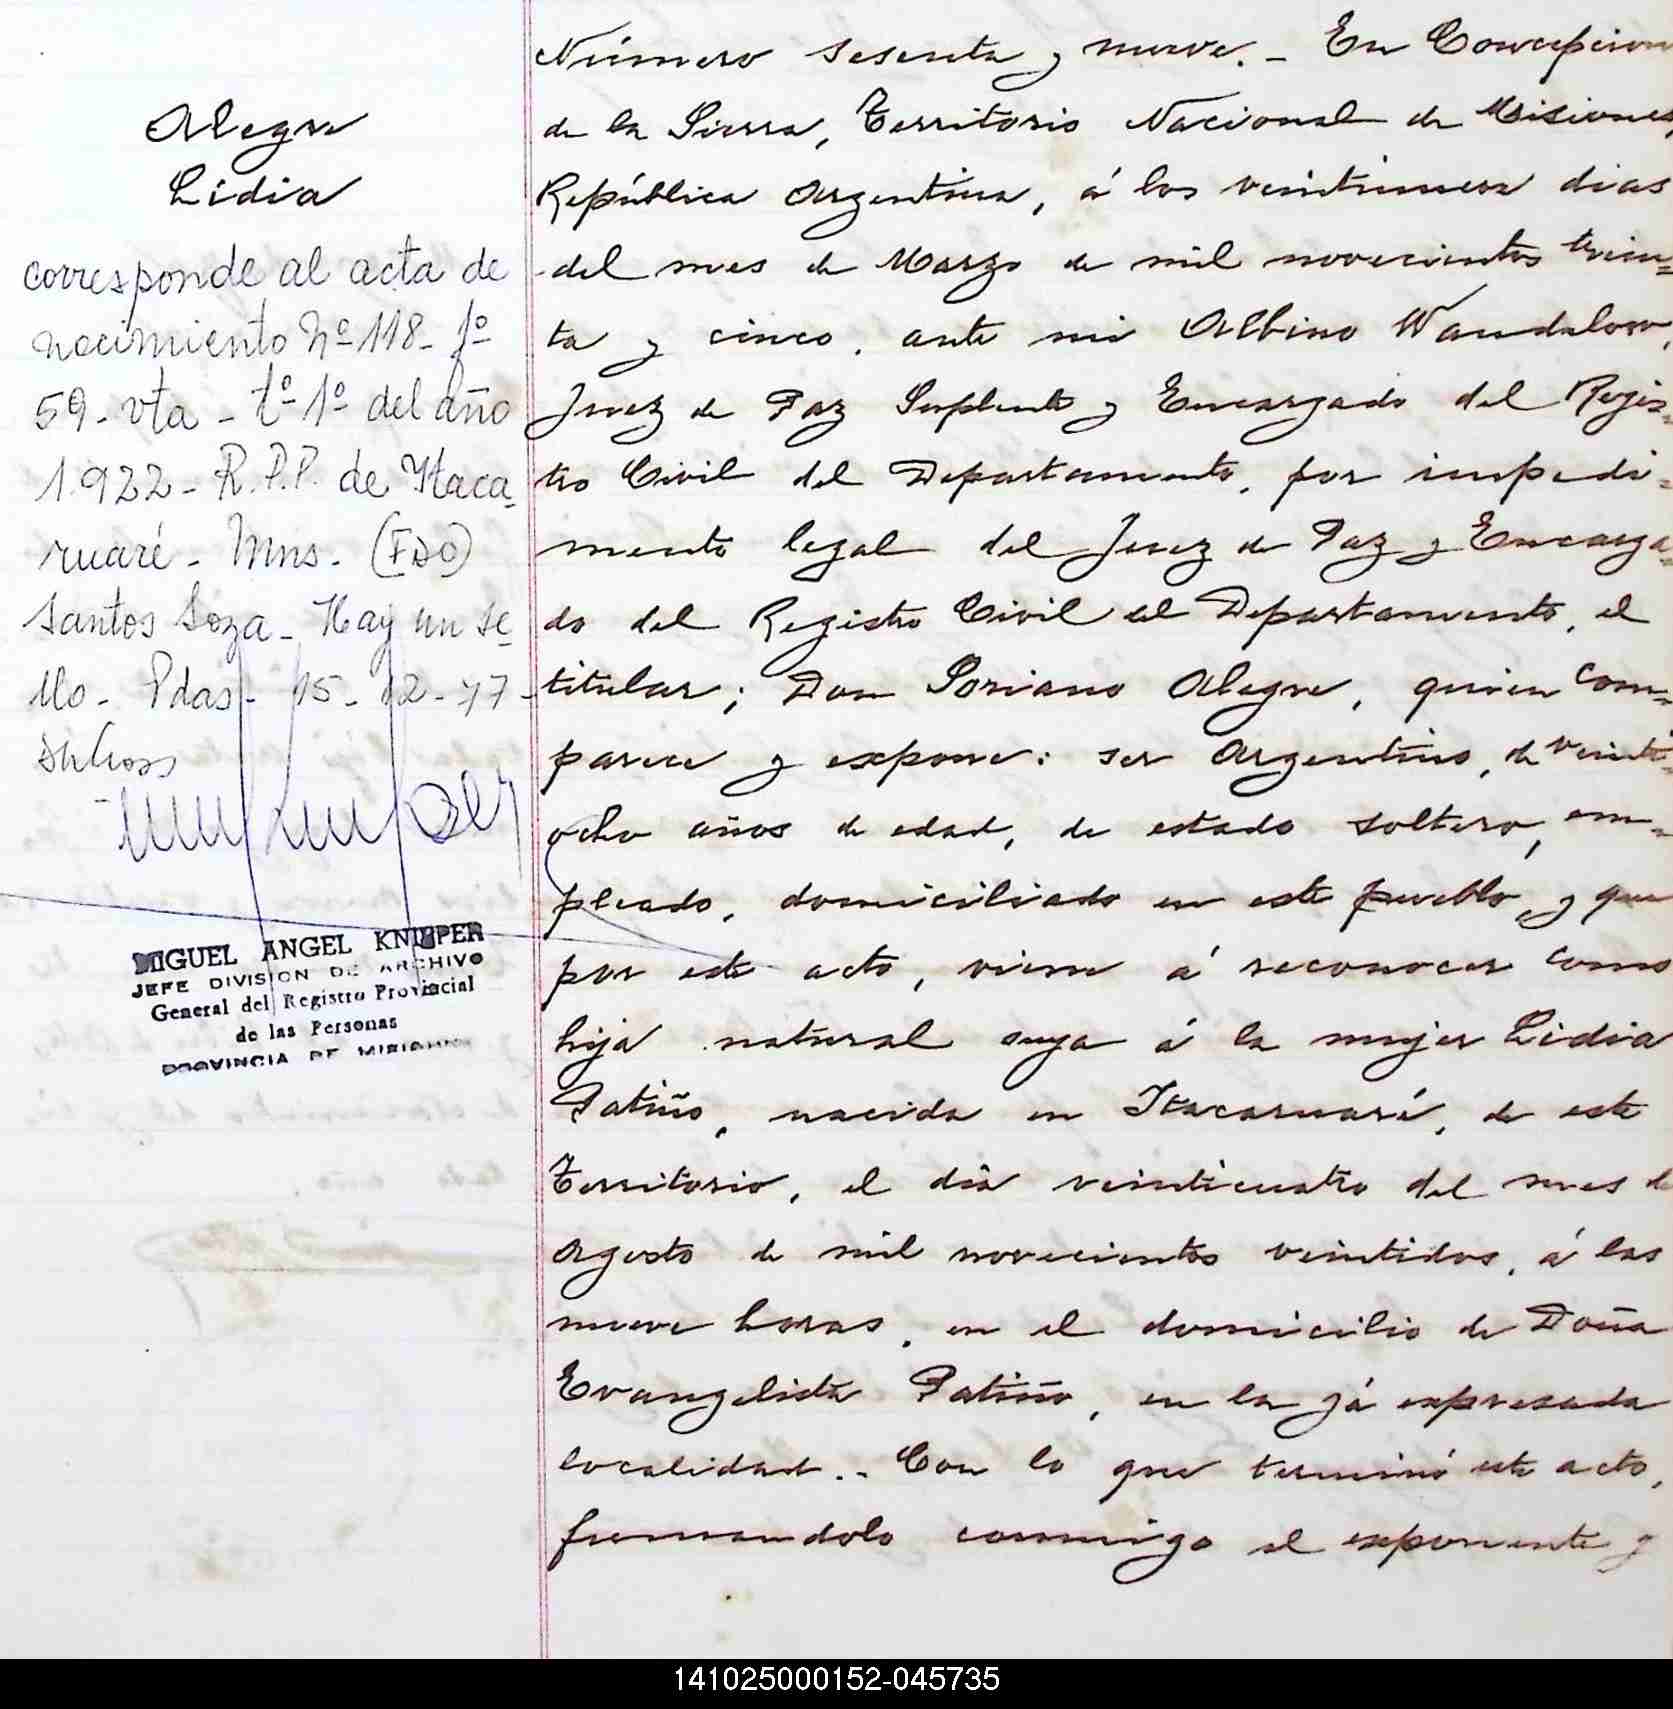 Alegre
Lidia
corresponde al acta de
nacimiento Nº 118- fº
59- vta - tº 1º del año
1.922- R.P.P. de Itaca-
ruaré - Mns. (FDO)
Santos Soza - Hay un se-
llo - Pdas - 15 - 12 - 77 -
MIGUEL ANGEL KNIPPER
JEFE DIVISION DE ARCHIVO
General del Registro Provincial
de las Personas
PROVINCIA DE MISIONES
Número sesenta y nueve. - En Concepcion
de la Sierra, Territorio Nacional de Misiones,
República Argentina, á los veintinueve dias
del mes de Marzo de mil novecientos trein=
ta y cinco, ante mi Albino
Juez de Paz Suplente y Encargado del Regis=
tro Civil del Departamento, por impedi=
mento legal del Juez de Paz y Encarga=
do del Registro Civil del Departamento, el
titular; Don Soriano Alegre, quien com=
parece y expone: ser argentino, de veinti=
ocho años de edad, de estado soltero, em=
pleado, domiciliado en este pueblo, y que
por este acto, viene á reconocer como
hija natural suya á la mujer Lidia
Patiño, nacida en Itacaruaré, de este
Territorio, el dia veinticuatro del mes de
Agosto de mil novecientos veintidos, á las
nueve horas, en el domicilio de Doña
Evangelista Patiño, en la já expresada
localidad. - Con lo que terminó este acto,
firmandolo conmigo el exponente y
141025000152-045735